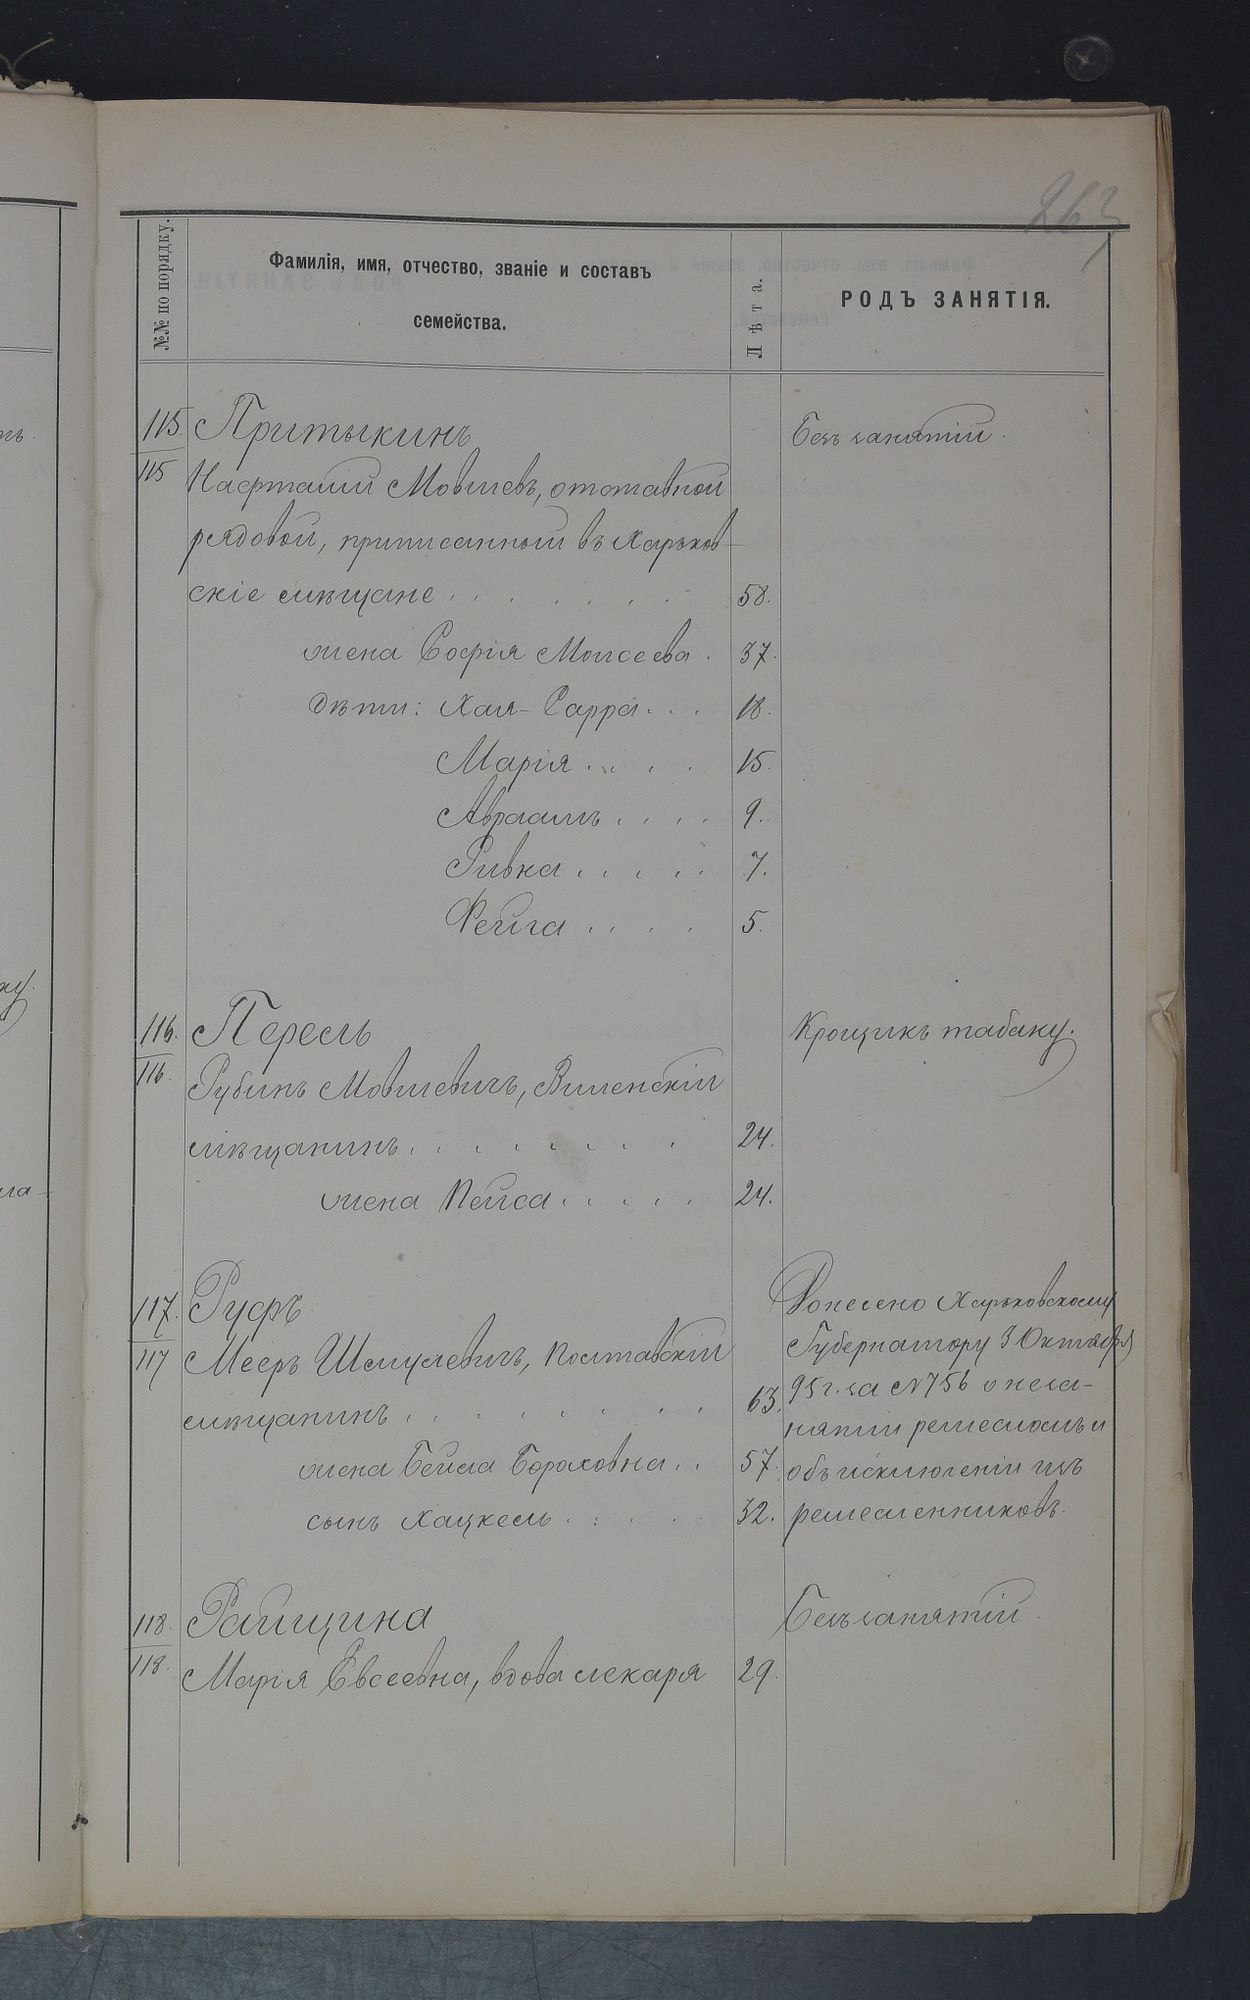 263
№№ по порядку.
Фамилія, имя, отчество, званіе и составъ
семейства.
Лѣта.
РОДЪ ЗАНЯТІЯ.
115. Притыкинъ Безъ занятій.
115 Нафталій Мовшевъ, отставной
рядовой, приписанный въ Харьков-
скіе мѣщане . . . . . . . 58.
жена Софія Моисеева . 37.
дѣти: Хая-Сарра . . . 18.
Марія . . . . 15.
Авраамъ . . . . 9.
Ривка . . . . . 7.
Фейга . . . . 5.
116. Пересъ Крощикъ табаку.
116. Рубинъ Мовшевичъ, Виленскій
мѣщанинъ . . . . . . . 24.
жена Пейса . . . . . 24.
117. Руфъ Донесено Харьковскому
Губернатору 3 Октября
117 Мееръ Шмулевичъ, Полтавскій
95 г. за №756 о неза-
мѣщанинъ . . . . . . . . 63.
нятіи ремесломъ и
жена Бейла Бороховна . . 57.
объ исключеніи изъ
сынъ Хацкель . . . . . 32.
ремесленниковъ.
118. Райщина Безъ занятій.
118. Марія Евсеевна, вдова лекаря 29.